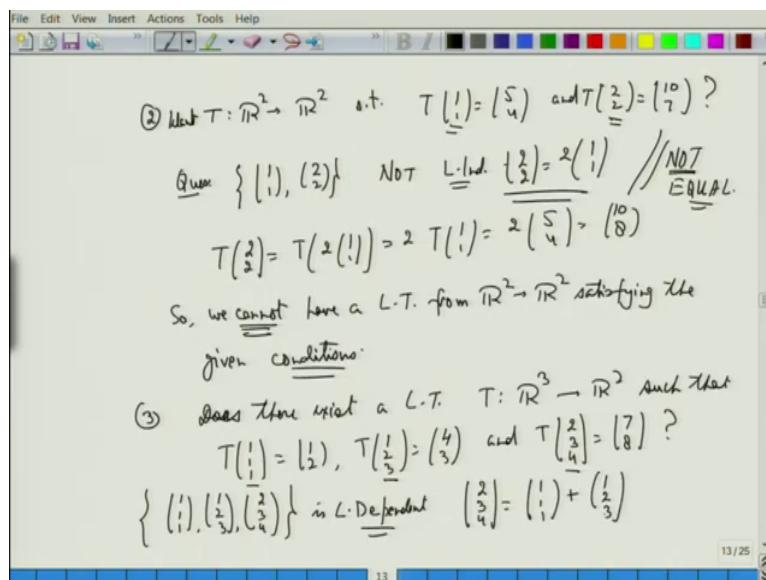 File Edit View Insert Actions Tools Help
② Want T : ℝ² → ℝ² s.t. T(1 1) = (5 4) and T(2 2) = (10 7) ?
Ques {(1 1), (2 2)} NOT L.Ind. (2 2) = 2(1 1) // NOT EQUAL.
T(2 2) = T(2(1 1)) = 2 T(1 1) = 2(5 4) = (10 8)
So, we cannot have a L.T. from ℝ² → ℝ² satisfying the
given conditions.
③ Does there exist a L.T. T : ℝ³ → ℝ² such that
T(1 1 1) = (1 2), T(1 2 3) = (4 3) and T(2 3 4) = (7 8) ?
{(1 1 1), (1 2 3), (2 3 4)} is L.Dependent (2 3 4) = (1 1 1) + (1 2 3)
13/25
13